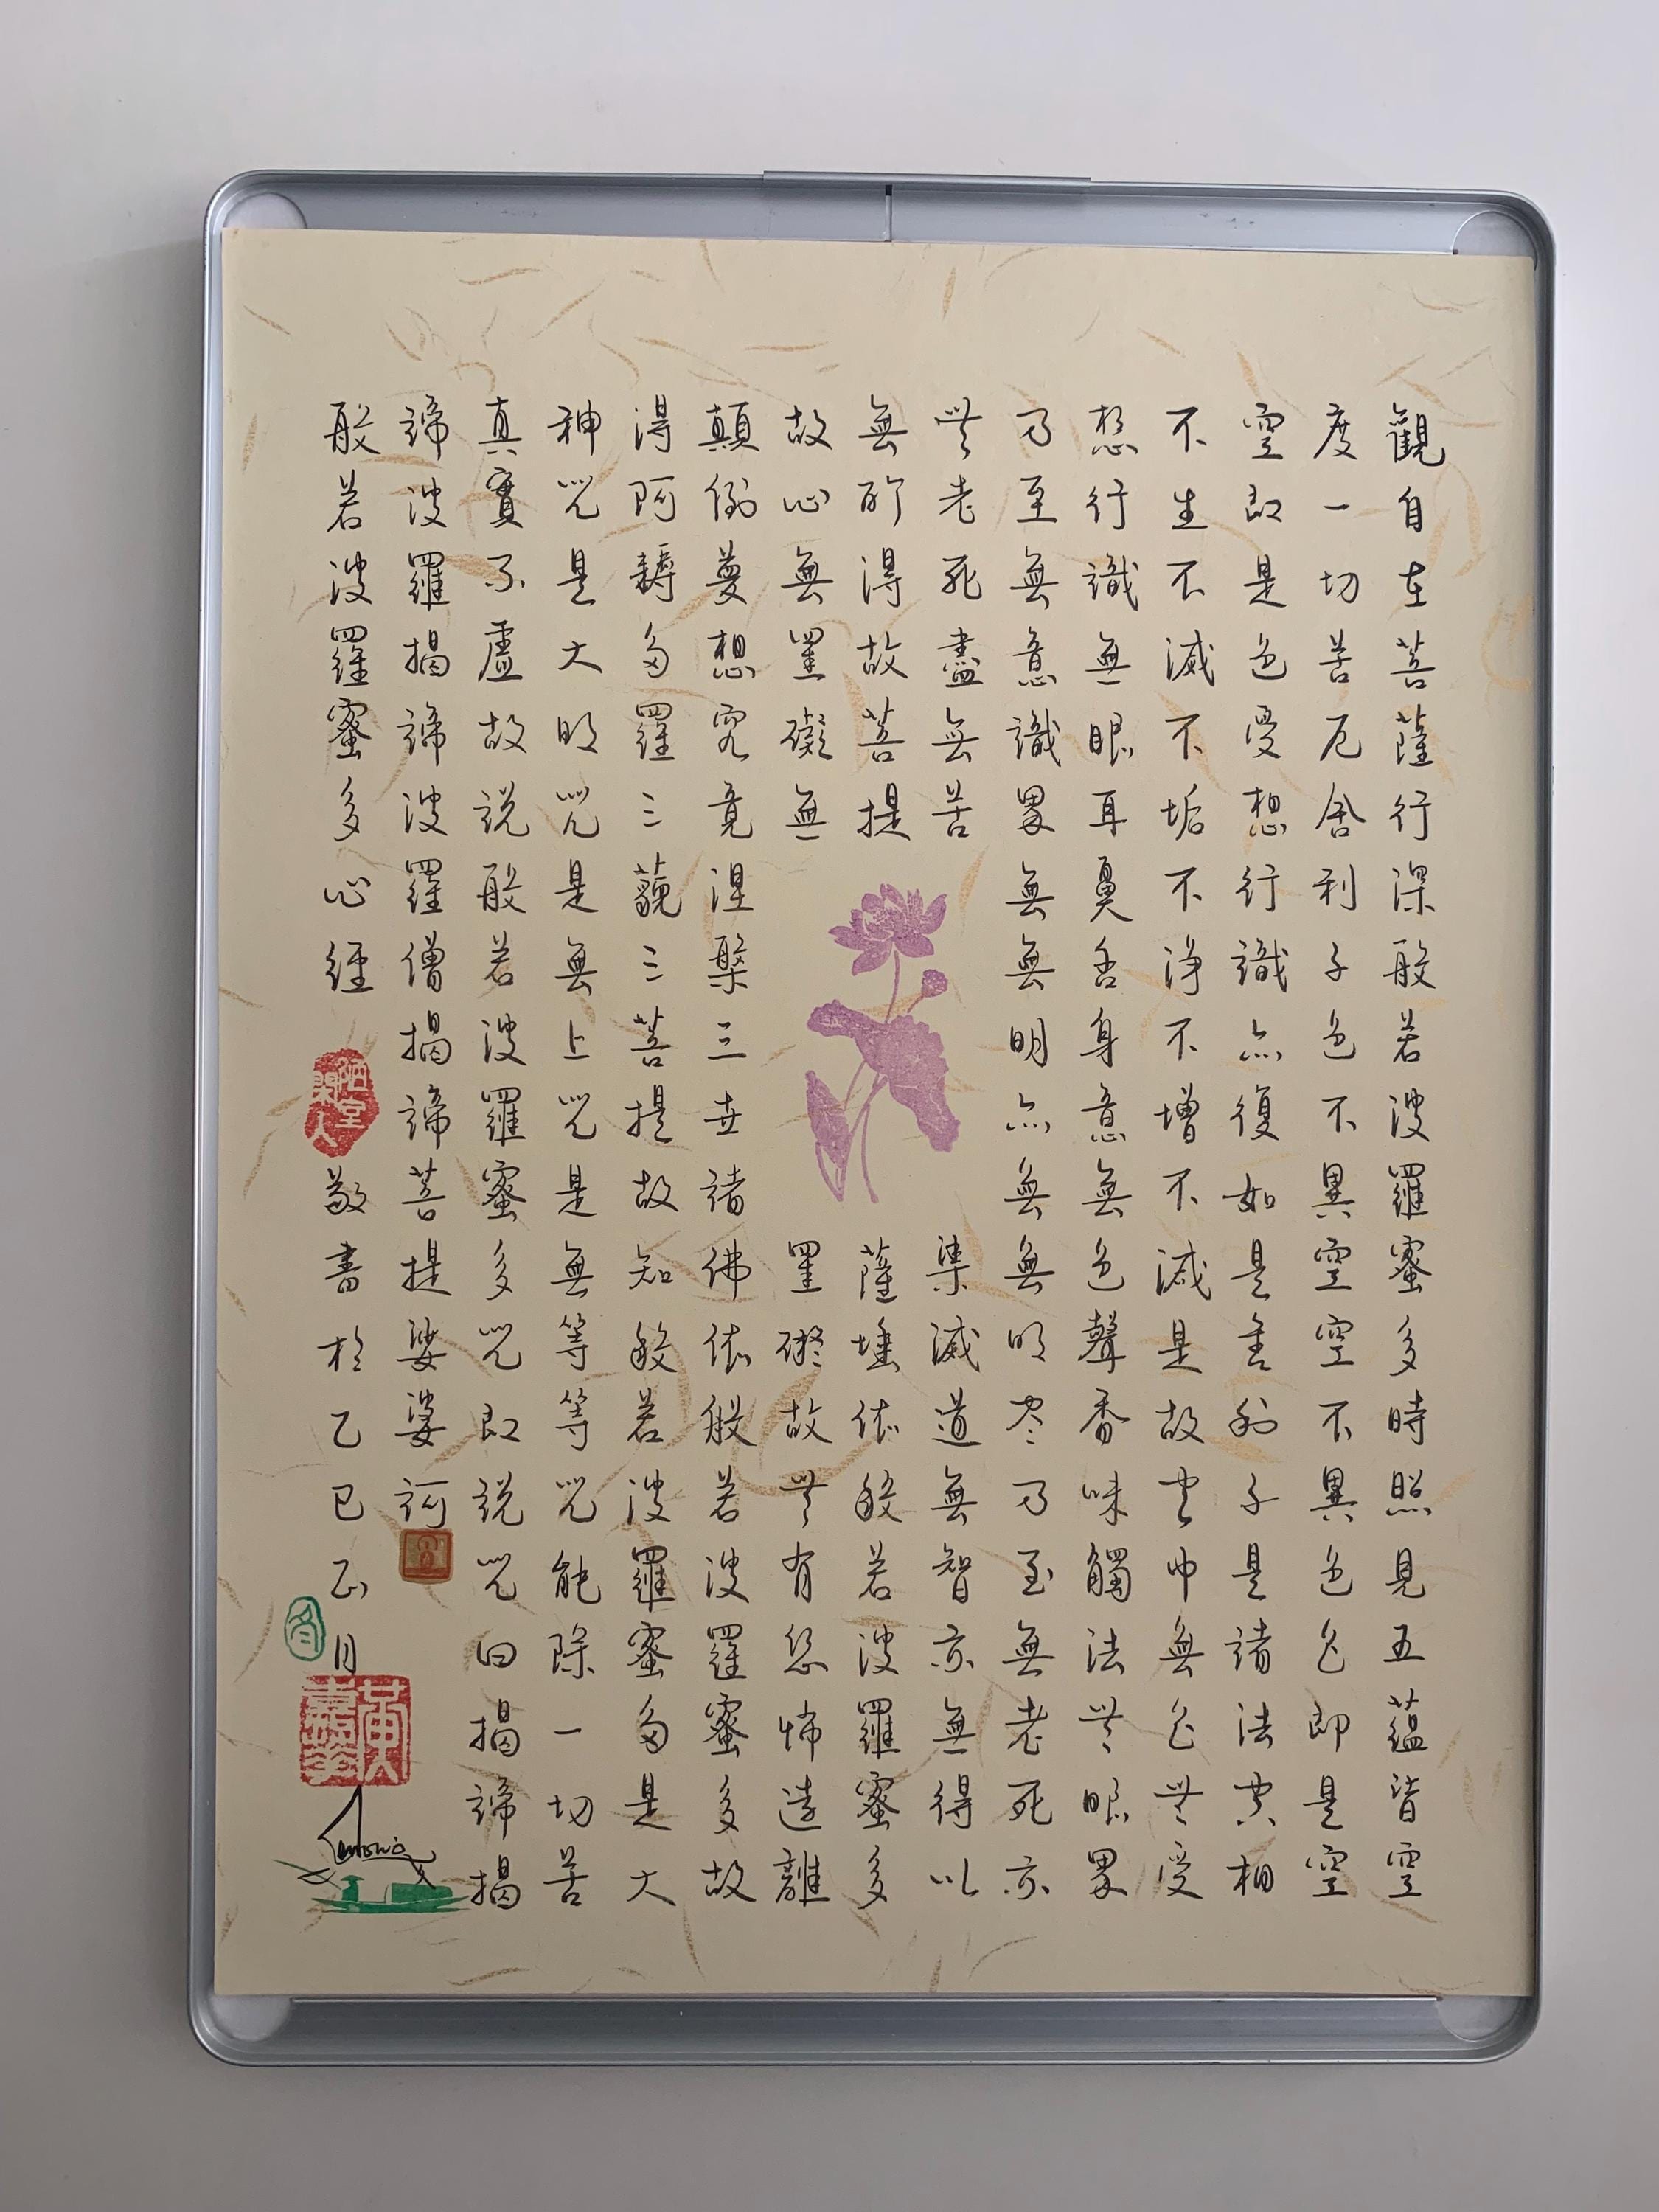 觀自在菩薩行深般若波羅蜜多時照見五蘊皆空
度一切苦厄舍利子色不異空空不異色色即是空
空即是色受想行識亦復如是舍利子是諸法空相
不生不滅不垢不淨不增不減是故空中無色無受
想行識無眼耳鼻舌身意無色聲香味觸法無眼界
乃至無意識界無無明亦無無明尽乃至無老死亦
無老死盡無苦集滅道無智亦無得以
無所得故菩提薩埵依般若波羅蜜多
故心無罣礙無罣礙故無有恐怖遠離
顛倒夢想究竟涅槃三世諸佛依般若波羅蜜多故
得阿耨多羅三藐三菩提故知般若波羅蜜多是大
神咒是大明咒是無上咒是無等等咒能除一切苦
真實不虛故說般若波羅蜜多咒即說咒曰揭諦揭
諦波羅揭諦波羅僧揭諦菩提娑婆訶
般若波羅蜜多心經
陋室閑人
敬書於乙巳正月